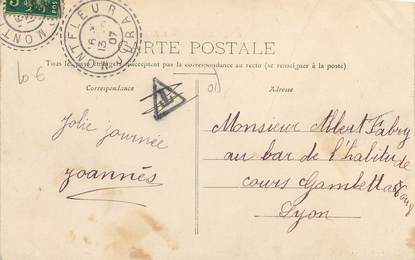 MONTFLEUR JURA
13
07
CARTE POSTALE
Tous les pays étrangers n'acceptent pas la correspondance au recto (se renseigner à la poste)
Correspondance
Adresse
T
Jolie journée
Joannés
Monsieur Albert Fabry
au bar de l'habitude
cours Gambetta
Lyon